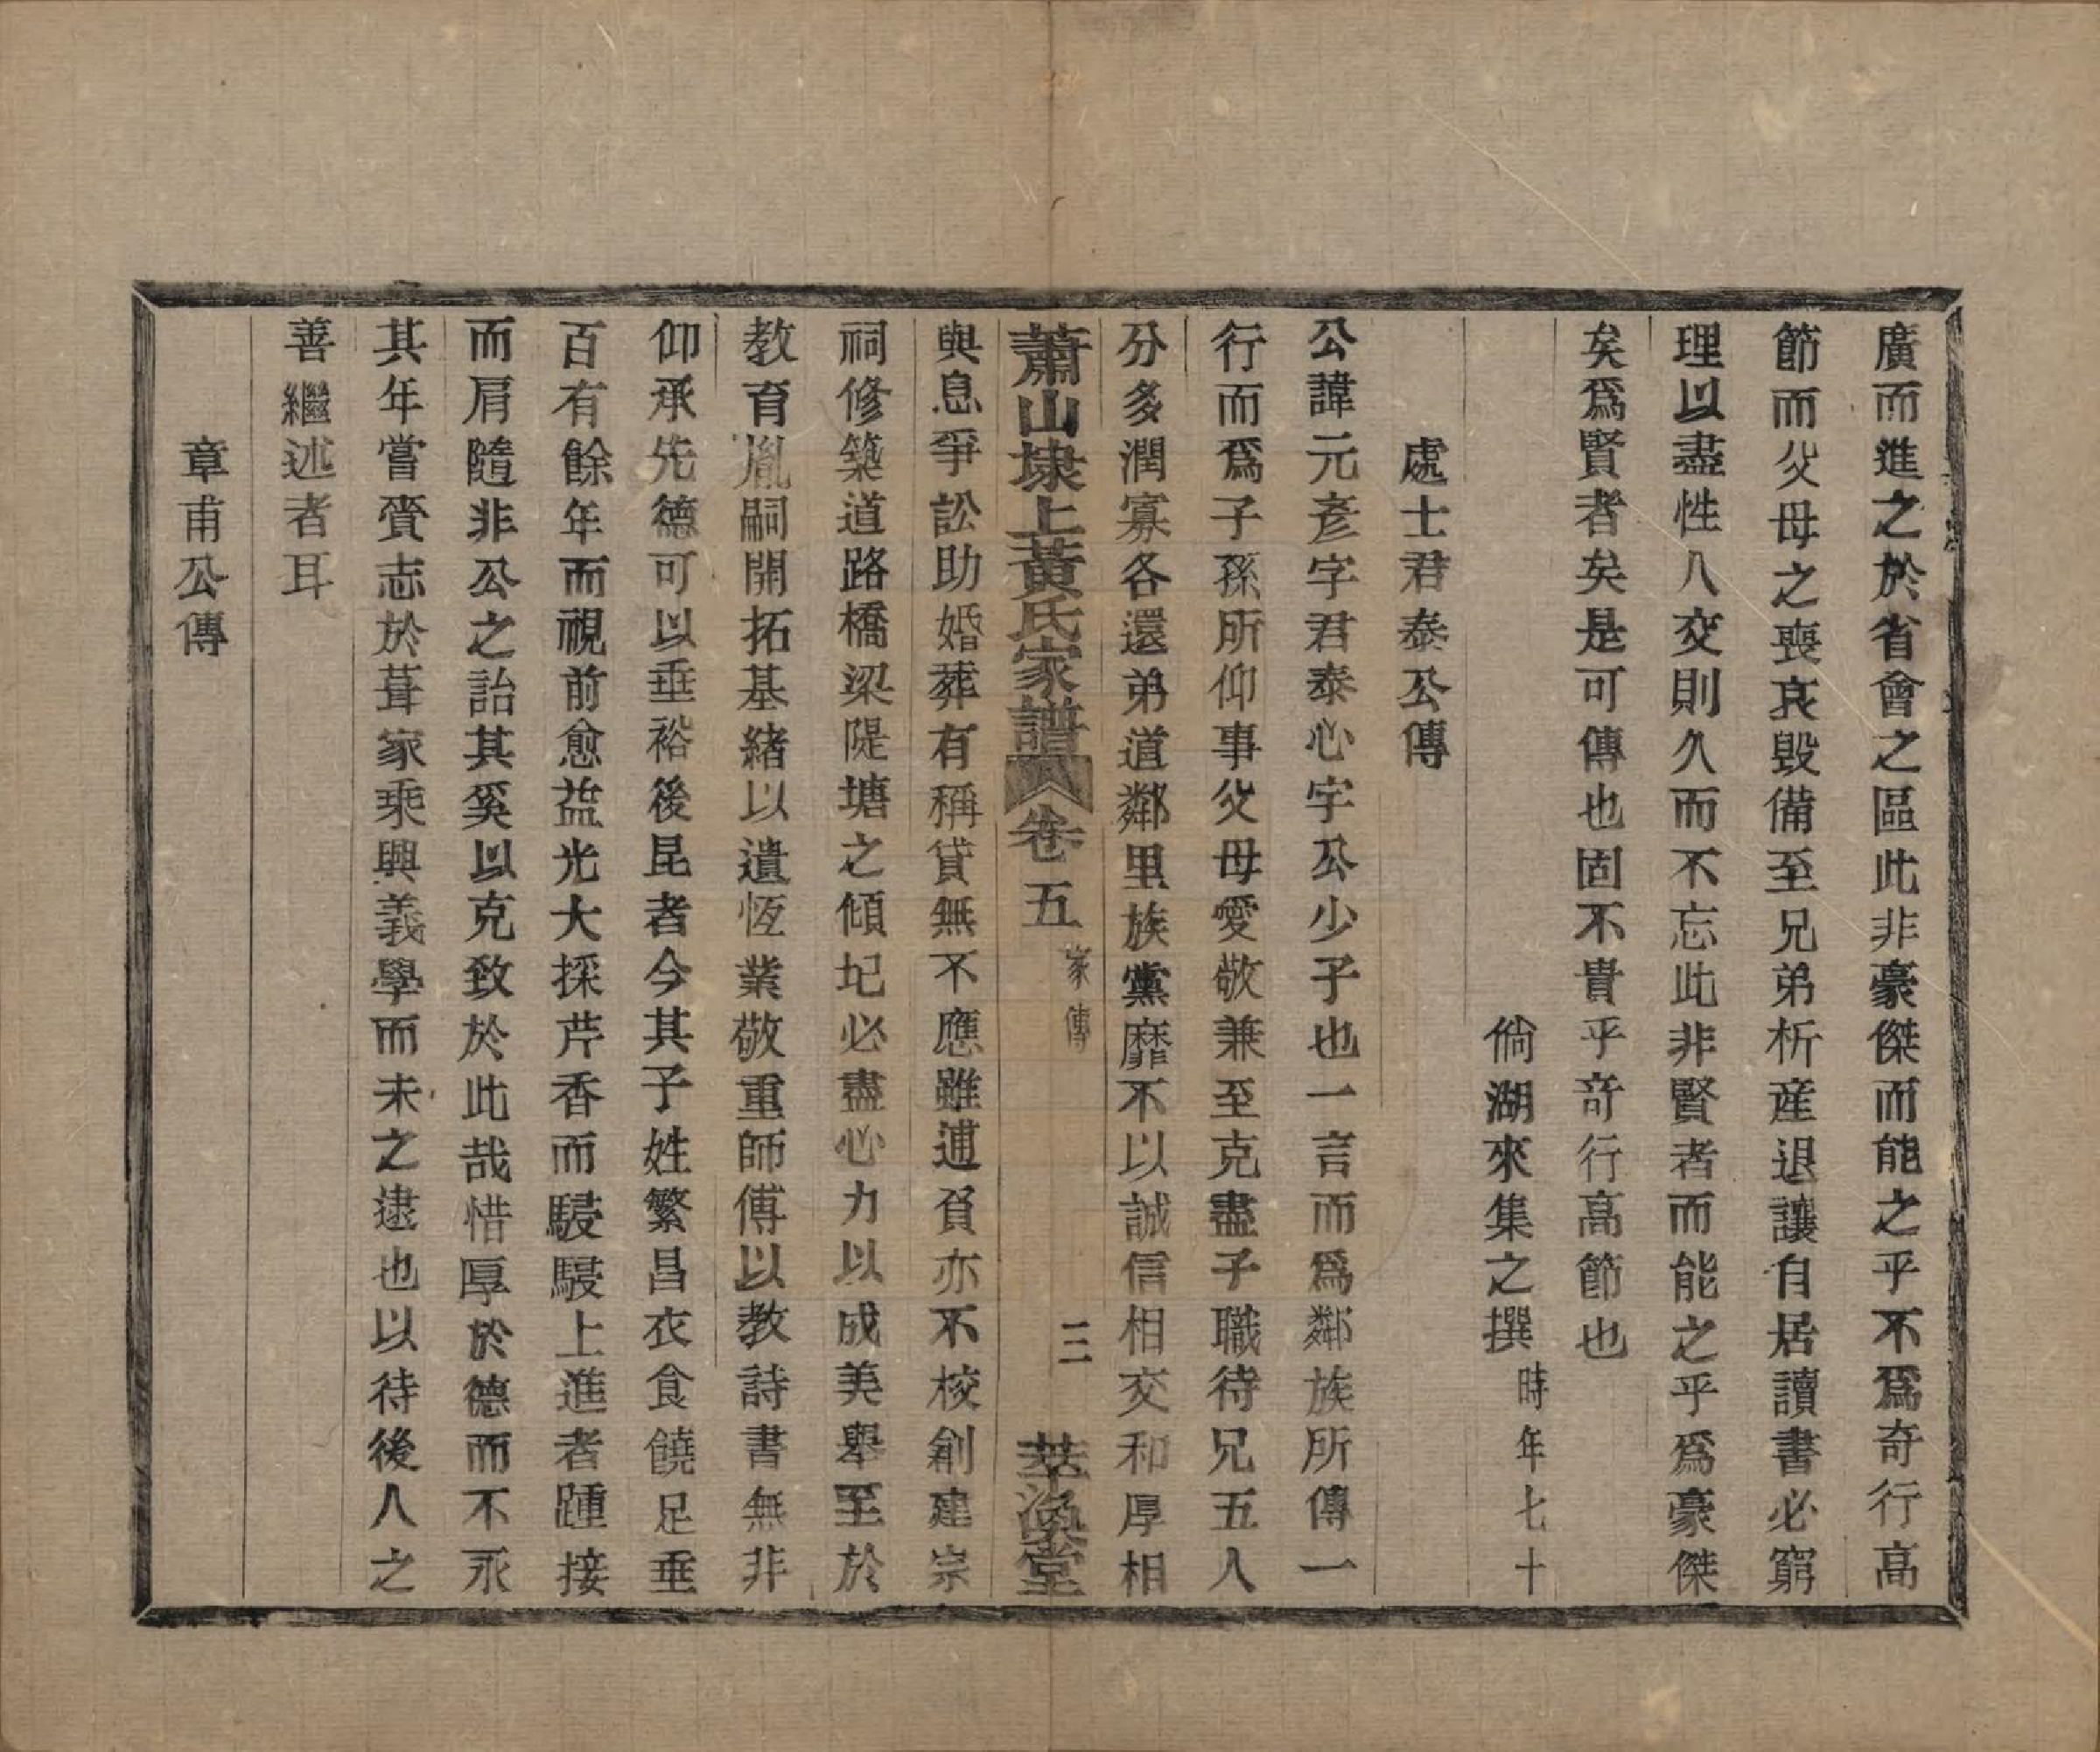 廣而進之於省會之區此非豪傑而能之乎不爲奇行高
節而父母之喪哀毀備至兄弟析産退讓自居讀書必窮
理以盡性人交則久而不忘此非賢者而能之乎爲豪傑
矣爲賢者矣是可傳也固不貴乎奇行高節也
倘湖來集之撰時年七十
處士君泰公傳
公諱元彦字君泰心宇公少子也一言而爲鄰族所傳一
行而爲子孫所仰事父母愛敬兼至克盡子職待兄五人
分多潤寡各還弟道鄰里族黨靡不以誠信相交和厚相
蕭山埭上黃氏家譜 卷五 家傳 三 萃渙堂
與息爭訟助婚葬有稱貸無不應雖逋負亦不校創建宗
祠修築道路橋梁隄塘之傾圮必盡心力以成美舉至於
教育胤嗣開拓基緒以遺恆業敬重師傅以教詩書無非
仰承先德可以垂裕後昆者今其子姓繁昌衣食饒足垂
百有餘年而視前愈益光大採芹香而駸駸上進者踵接
而肩隨非公之詒其奚以克致於此哉惜厚於德而不永
其年嘗賫志於葺家乘興義學而未之逮也以待後人之
善繼述者耳
章甫公傳